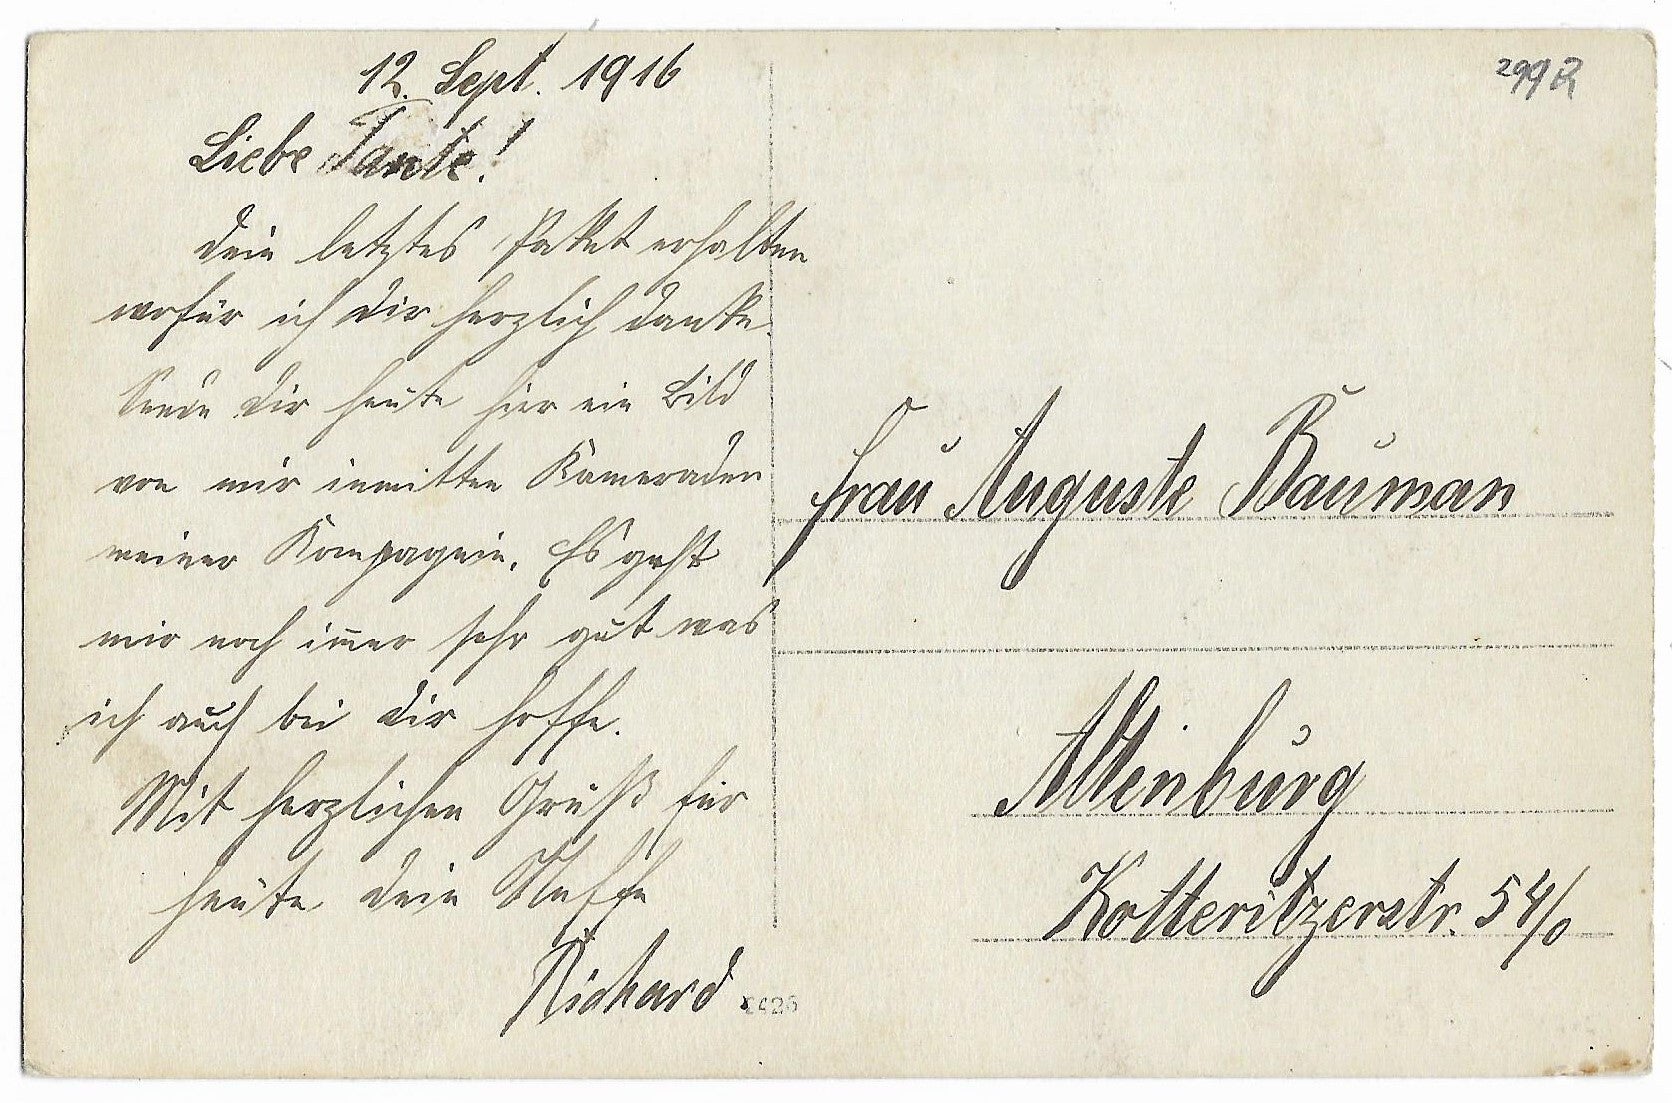 12. Sept. 1916
Liebe Tante!
Dein letztes Paket erhalten
wofür ich dir herzlich danke.
Sende dir heute hier ein Bild
von mir inmitten Kameraden
meiner Kompagnie. Es geht
mir noch im̅er sehr gut was
ich auch bei dir hoffe.
Mit herzlichen Gruß für
heute dein Neffe
Richard
299 R
Frau Auguste Bauman
Altenburg
Kotteritzerstr. 54/0